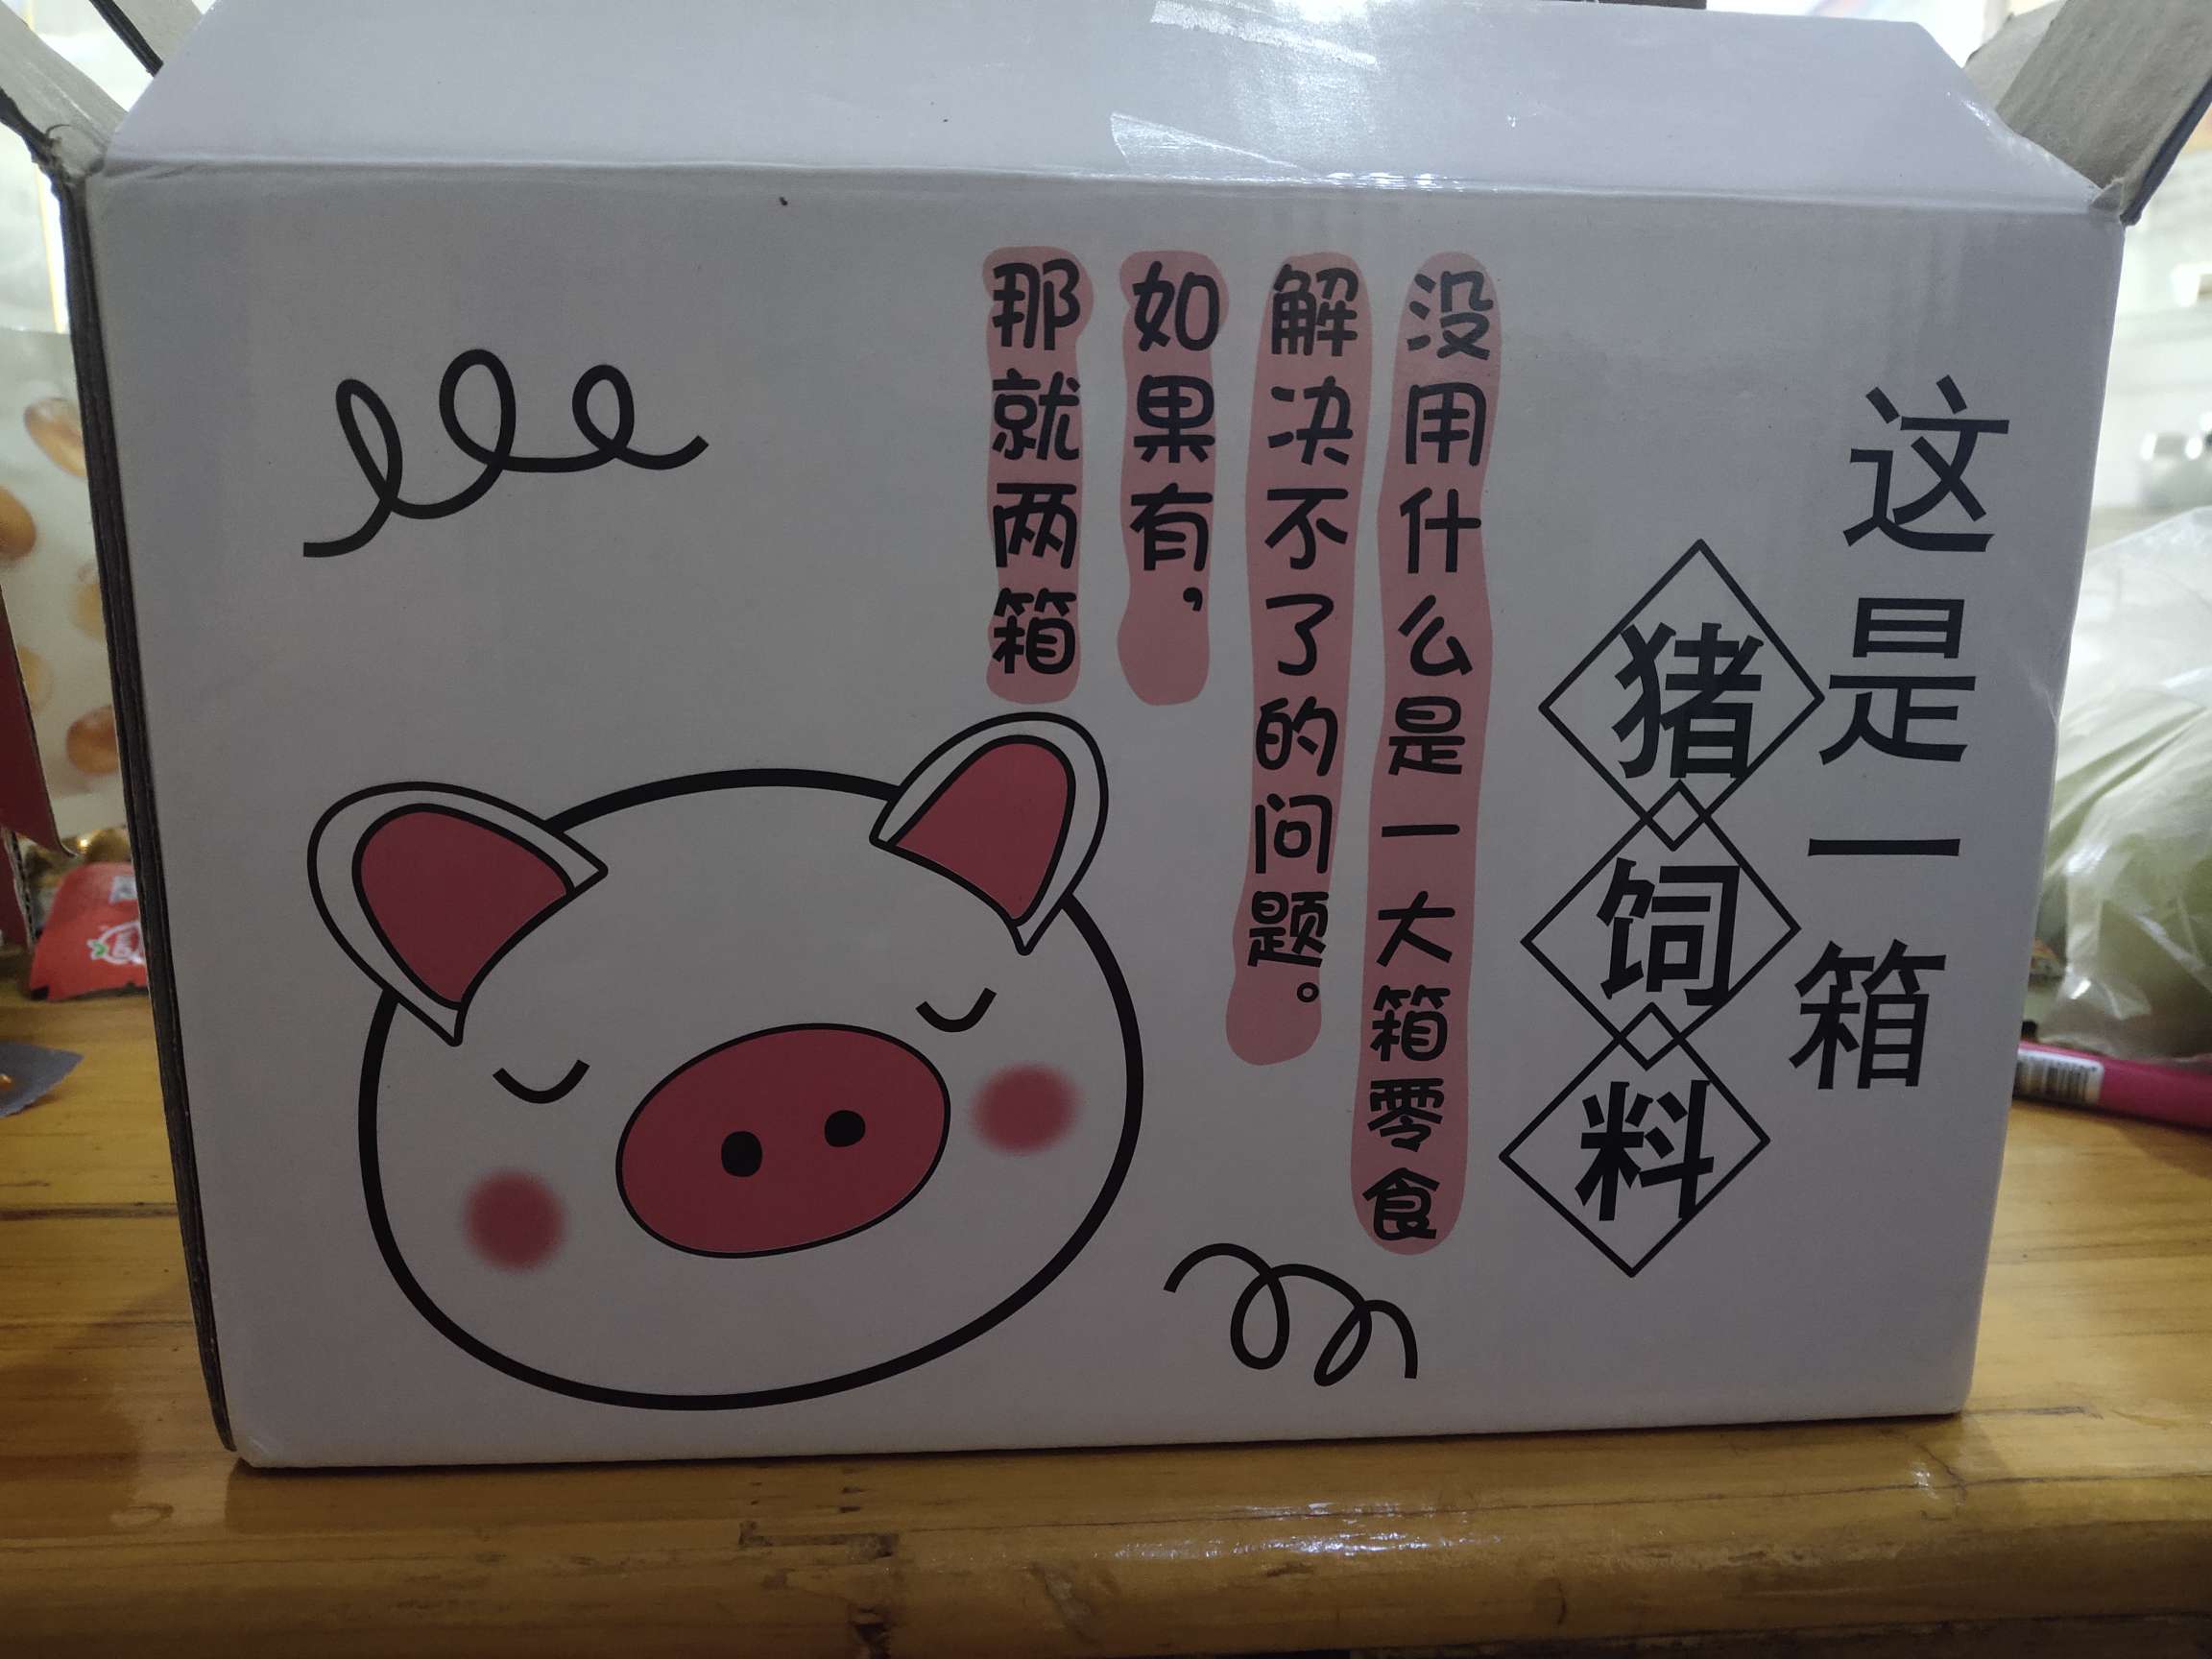 这是一箱
猪饲料
没用什么是一大箱零食
解决不了的问题。
如果有，
那就两箱